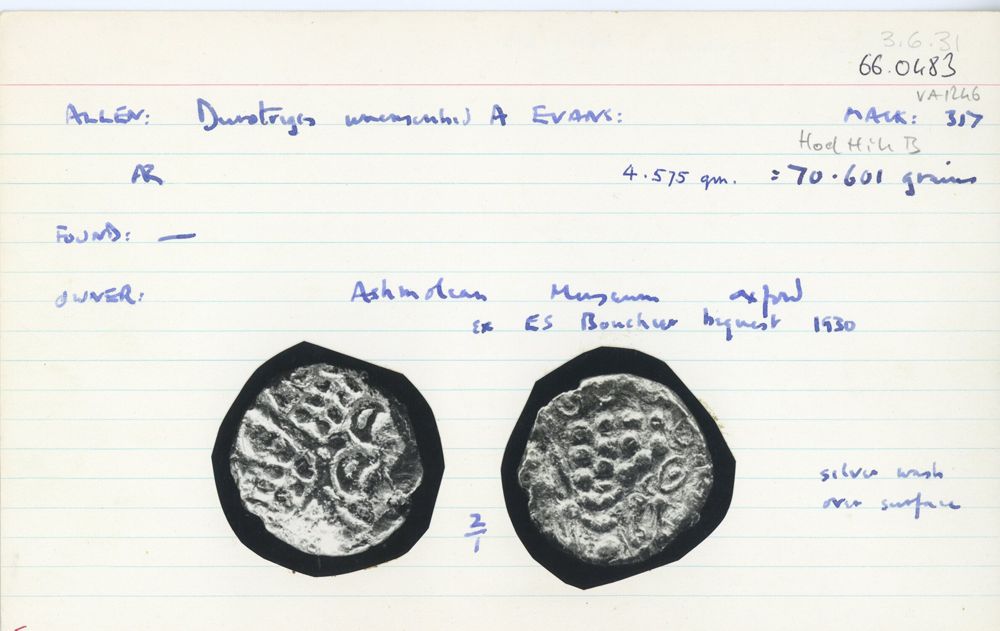 3.6.31
66.0483
VA1246
ALLEN: Durotriges uninscribed A EVANS: MACK: 317
Hod Hill B
AR 4.575 gm. = 70.601 grains
FOUND: —
OWNER: Ashmolean Museum Oxford
ex ES Bouchier bequest 1930
silver wash
over surface
2/1